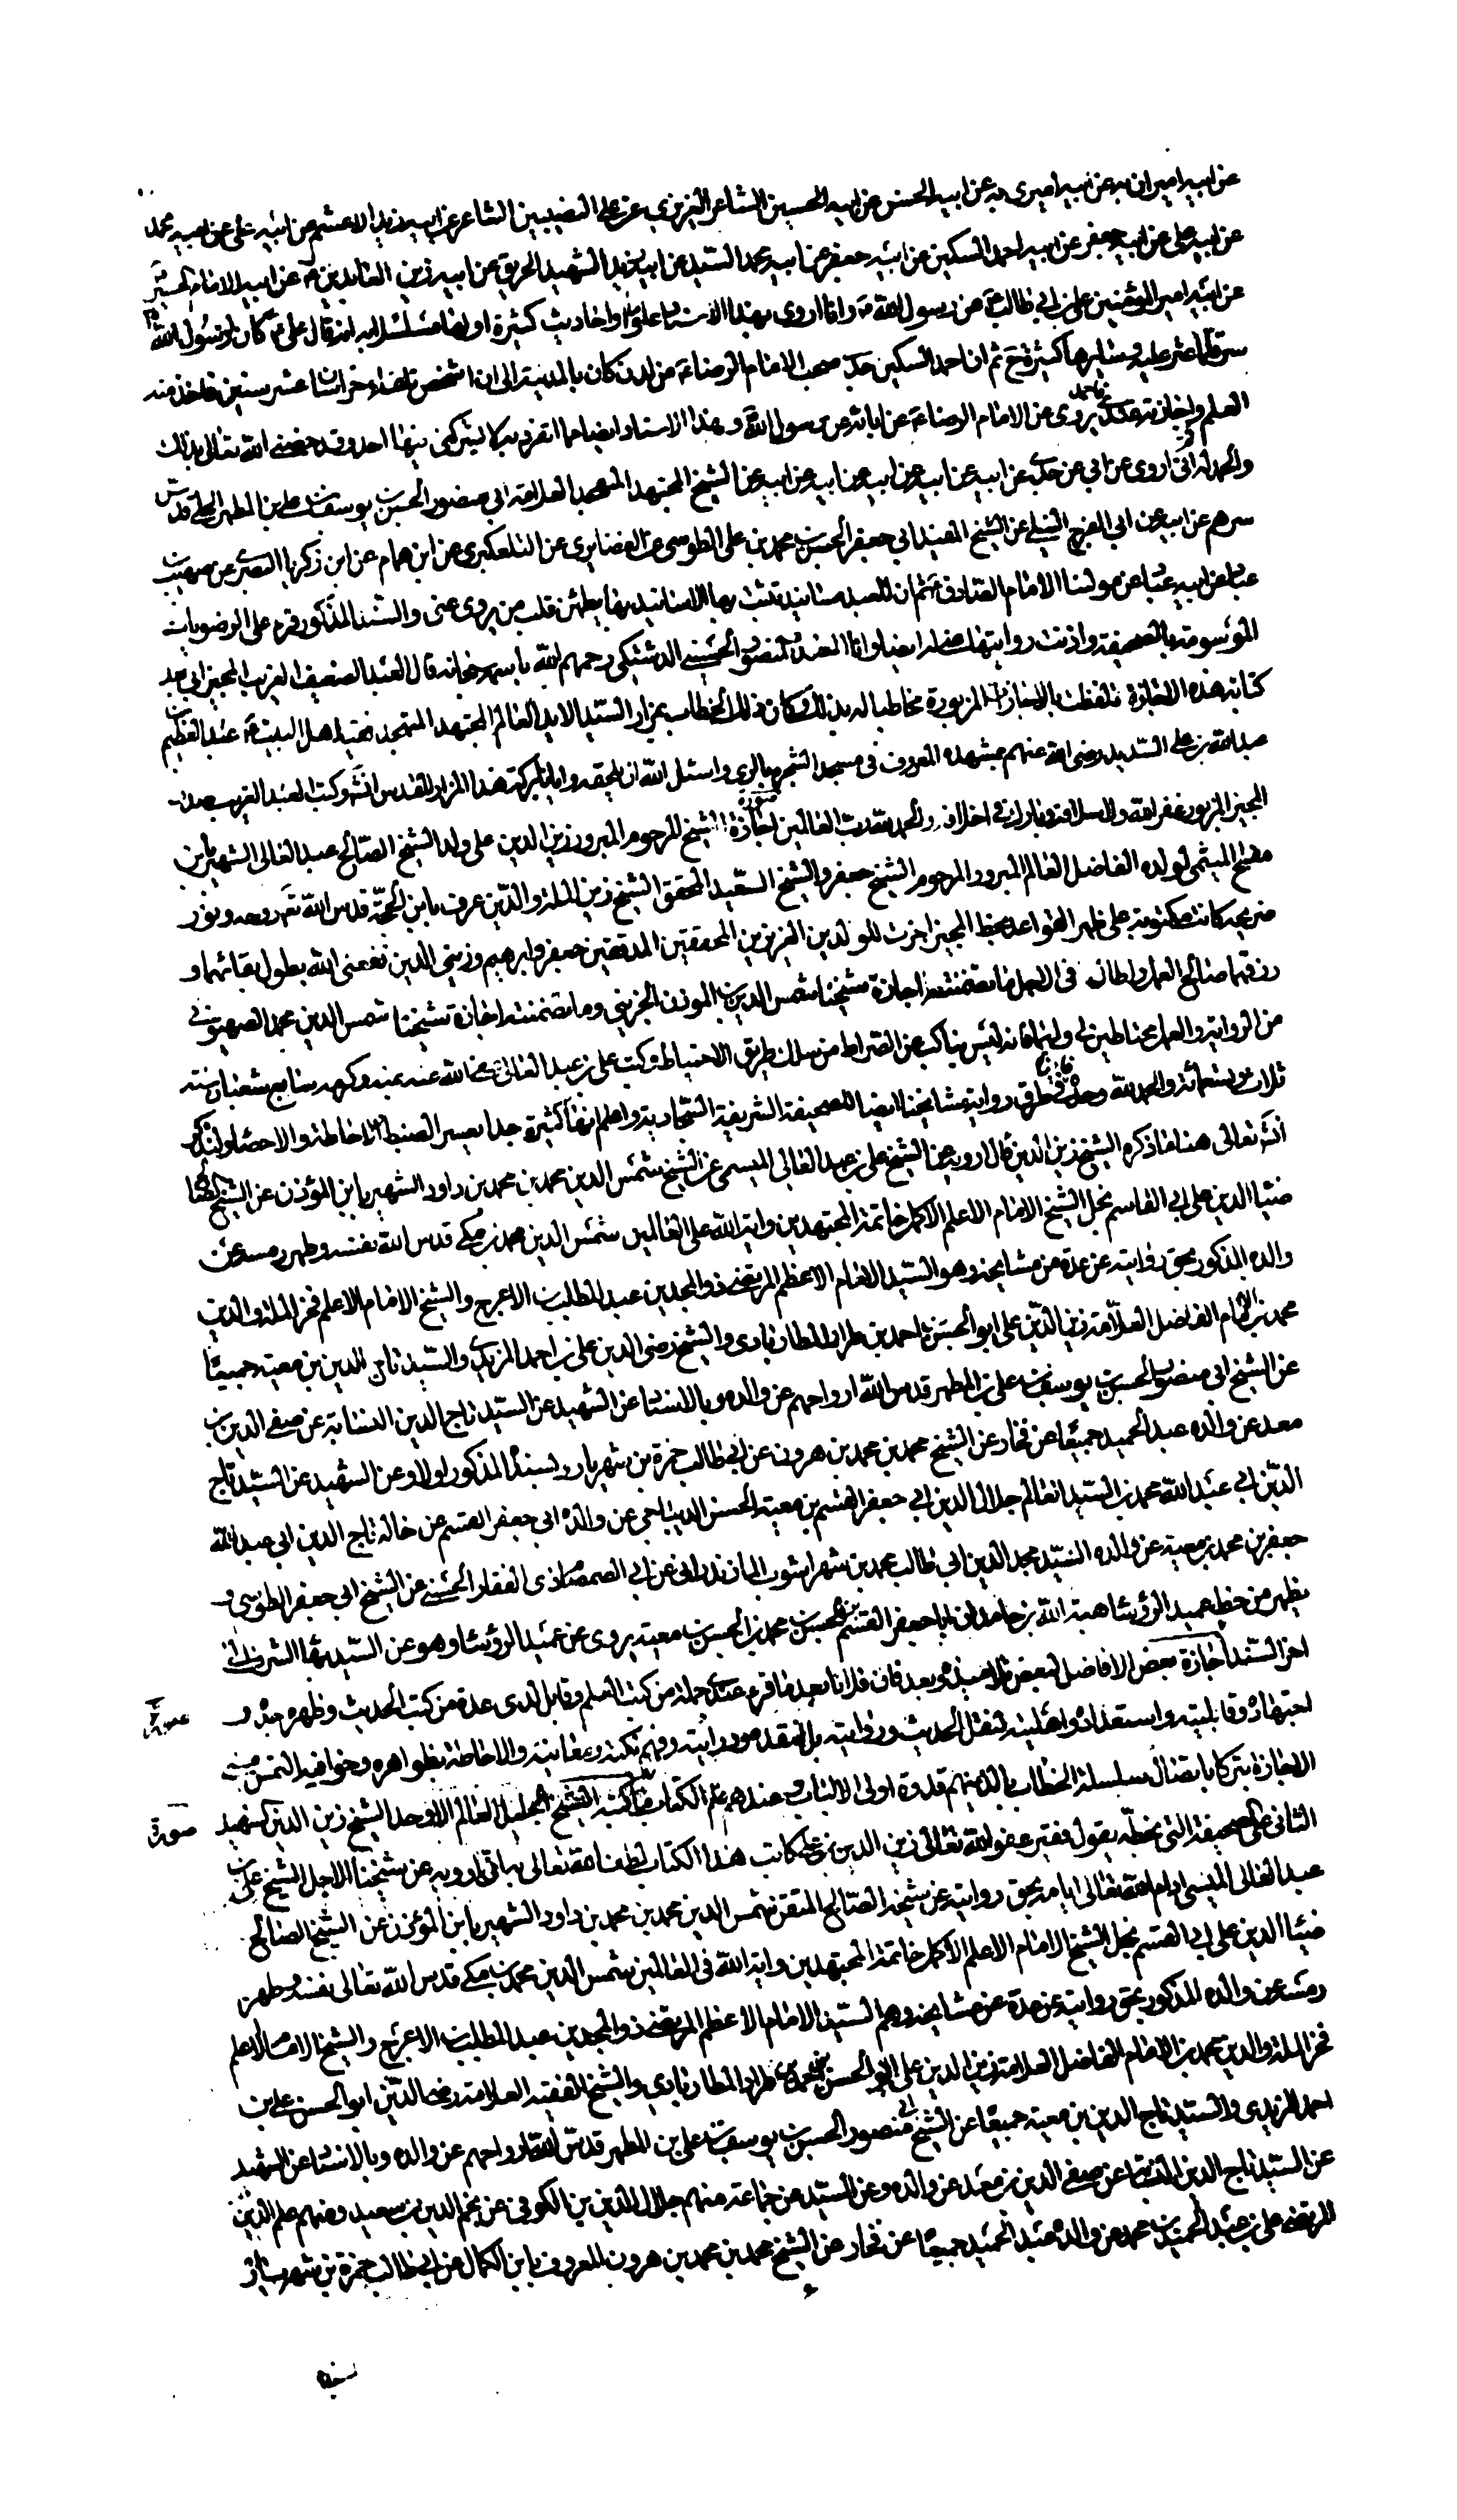 عن ابيه اميران به عن ابيه اميرى به عن ابيه الحسن عن ابيه الحسين الشاعر العزيزى عن على النصيبين الشاعر عن ابيه زيد الاعشم عن ابيه على عن ابيه محمد
عن ابيه على عن ابيه جعفر عن ابيه احمد السكين عن ابيه جعفر عن ابيه محمد السيد عن ابيه زيد الشهيد الحريق عن ابيه زين العابدين ع عن ابيه الامام الحسين
عن ابيه امير المؤمنين على بن ابى طالب ع عن رسول الله ص وانا اروى بهذا الاسناد احاديث كثيرة اولها مسلسلا به انه قال على ع كان لرسول الله ص
سر قلما عثر عليه وسايرها كثيرة ح ثم ان احمد السكين جدى صحب الامام الرضا ع من لدن كان بالمدينة الى ان اشخص تلقاء خراسان عشر سنين فاخذ منه
العلم واجازته عندى فاحمد يروى عن الامام الرضا ع عن ابائه عن رسول الله وهذا الاسناد ايضا مما اتفرد به لا يشركنى فيها احد وقد خصنى الله تعالى بذلك
والحمد لله وانى اروى عن ابى عن جدى عن ابيه عن ابيه عن ابيه عن ابيه عن ابيه عن الشيخ المجتهد العلامة ابى منصور الحسن بن يوسف بن على بن المطهر الحلى قدس
سرهم عن ابيه عن ابى الفرج النيلى عن الشيخ المفيد ابى جعفر الحسن بن محمد بن على الطوسى عن الغضايرى عن التلعكبرى عن ابن همام عن ابن زكريا البصرى عن صهيب بن
عباد عن ابيه عباد عن مولنا الامام الصادق ع ثم ان للعبد مسانيد تثبت بها الاسانيد بها يطمئن قلب من يروى عنى والسند المذكور قرء على الرضويات
الموسومة بالصحيفة واذنت روايتها له ايضا وانا العبد منصور الحسينى الدشتكى رحمهم الله باسمه سبحانه قال العبد الضعيف الغريب المجيز انى بعد
كتابة هذه الاجازة تلفظت بالاجازات المزبورة مخاطبا له بذلك وكان ذلك الخطاب بمزار السيد الايد العالم المجتهد المتهجد فقيه اهل البيت ع عبد العظيم بن
عبد الله بن على السديد رضى الله عنهم بمشهده المعروف فى مسجد الشجره بالرى واسئل الله ان يلحقه وايانا ببركة هذا المزار المقدس انشه وكتب العبد الغريب
المجيز المزبور غفر الله له ولاسلافه وبارك فى اخلافه والحمد لله رب العالمين صورة اجازة الشيخ المرحوم المبرور زين الدين على ولد الشيخ الصالح عبد العالى الشهير بابن
مفلح الميثمى لولده الفاضل العالم المبرور المرحوم الشيخ جعفر والشيخ السعيد المحقق الشيخ زين الملة والدين عرف بابن الحجة قدس الله تع روحه ونور
ضريحه كانت مكتوبة على ظهر القواعد بخط المجيز اجزت للولدين العزيزين المحققين المدققين جعفر وابرهيم وزينى الدين نفعنى الله بطول بقائهما و
رزقهما صالح العمل واطاله فى الاجل ما تضمنته اجازة شيخنا شمس الدين بن الموذن الجزينى وما تضمنته اجازة شيخنا شمس الدين محمد الصهيونى
من الرواية والعمل محتاطين لى ولهما فانه ليس بناكب عن الصراط من سلك طريق الاحتياط وكتب على بن عبد العالى عفا الله عنه بمنه وكرمه سابع شعبان سنه
ثلاث وتسعمائة والحمد لله وحده فائدة فى طرق رواية مشايخنا ايضا للصحيفة الشريفة السجادية واعلم انها كثيرة جدا يعسر الضبط والاحاطة والاحصاء ولنذكر
انشه تعالى هنا ما ذكره الشيخ زين الدين قال ارويها عن الشيخ على بن عبد العالى الميسى عن الشيخ شمس الدين محمد بن محمد بن داود الشهير بابن المؤذن عن الشيخ الصالح
ضياء الدين على ابى القاسم نجل الشيخ الامام الاعلم الاكمل خاتمة المجتهدين واية الله على العالمين شمس الدين محمد بن مكى قدس الله نفسه وطهر رمسه عن
والده المذكور بحق روايته عن عدة من مشايخه وهو السيد الامام الاعظم المرتضى ذو المجدين عبد المطلب الاعرج والشيخ الامام الاعلم فخر الملة والدين
محمد بن الامام الفاضل العلامة زين الدين على ابو الحسن احمد بن طراد المطاربادى والشيخ رضى الدين على بن احمد المزيدى والسيد تاج الدين بن معية جميعا
عن الشيخ ابى منصور الحسن بن يوسف بن على بن المطهر قدس الله ارواحهم عن والده وبالاسناد عن الشهيد عن السيد تاج الدين النسابة عن صفى الدين بن
معد عن والده عبد الحميد جميعا عن فخار عن الشيخ محمد بن محمد بن هرون عن ابى طالب حمزة بن شهريار بسنده المذكور اولا وعن الشهيد عن السيد تاج
الدين ابى عبد الله محمد بن السيد العالم جلال الدين ابى جعفر القسم بن معية الحسن الديباجى عن والده ابى جعفر القسم عن خاله تاج الدين ابى عبد الله
جعفر بن محمد بن معية عن والده السيد مجد الدين ابى طالب محمد بن شهراشوب المازندرانى عن ابى الصمصام ذى الفقار الحسنى عن الشيخ ابى جعفر الطوسى و
يظهر من خط عميد الرؤسا هبة الله بن حامد ان ابا جعفر القسم بن الحسن بن محمد بن الحسن بن معية يروى عن عميد الرؤسا وهو عن السيد بهاء الشرف الى
اخر السند اجازة بعض الافاضل لبعض تلاميذه وبعد فان فلانا بعد ما قرء عندى جملة من كتب العلم وقابل لدى عدة من كتب الحديث وظهر جده و
صورة
اجتهاده وقابليته واستعداده واهليته لنقل الحديث وروايته بل لنقده ودرايته وفهم نكته ومعانيه والاحاطة بظواهره وخوافيه التمس منى
الاجازة تبركا باتصال سلسلة الخطاب بالذين هم قدوة اولى الالباب وعندهم علم الكتاب ما كتبه الشيخ الجليل العالم الاوحد الشيخ زين الدين الشهيد
صورة
الثانى على الصحيفة التى بخطه يقول فقير عفو الله تعالى زين الدين بن على كاتب هذا الكتاب لطف الله تعالى به انى ارويه عن شيخنا الاجل الشيخ على بن
عبد العالى الميسى ادام الله تعالى ايامه بحق روايته عن شيخه الصالح المتقن شمس الدين محمد بن محمد بن داود الشهير بابن المؤذن عن الشيخ الصالح
ضياء الدين على ابى القسم نجل الشيخ الامام الاعلم الاكمل خاتمة المجتهدين واية الله فى العالمين شمس الدين محمد بن مكى قدس الله تعالى نفسه وطهر
رمسه عن والده المذكور بحق روايته عن عدة عن مشايخه وهم السيد الامام الاعظم المرتضى ذو المجدين عبد المطلب الاعرج والشيخ الامام الاعلم
فخر الملة والدين محمد بن الامام الفاضل العلامة زين الدين على ابو الحسن بن احمد بن طراد المطاربادى والشيخ الفقيه العلامة رضى الدين ابو الحسن على بن
احمد المزيدى والسيد تاج الدين بن معية جميعا عن الشيخ ابى منصور الحسن بن يوسف بن على بن المطهر قدس الله ارواحهم عن والده وبالاسناد عن الشهيد
عن السيد تاج الدين النسابة عن صفى الدين بن معد عن والده وعن السيد عن جماعة منهم جلال الدين بن الكوفى عن نجم الدين بن سعيد ومنهم علم الدين
المرتضى على بن عبد الحميد بن محمد عن والده عبد الحميد جميعا عن فخار عن الشيخ محمد بن محمد بن هرون المعروف بابن الكمال عن ابى طالب حمزة بن شهريار